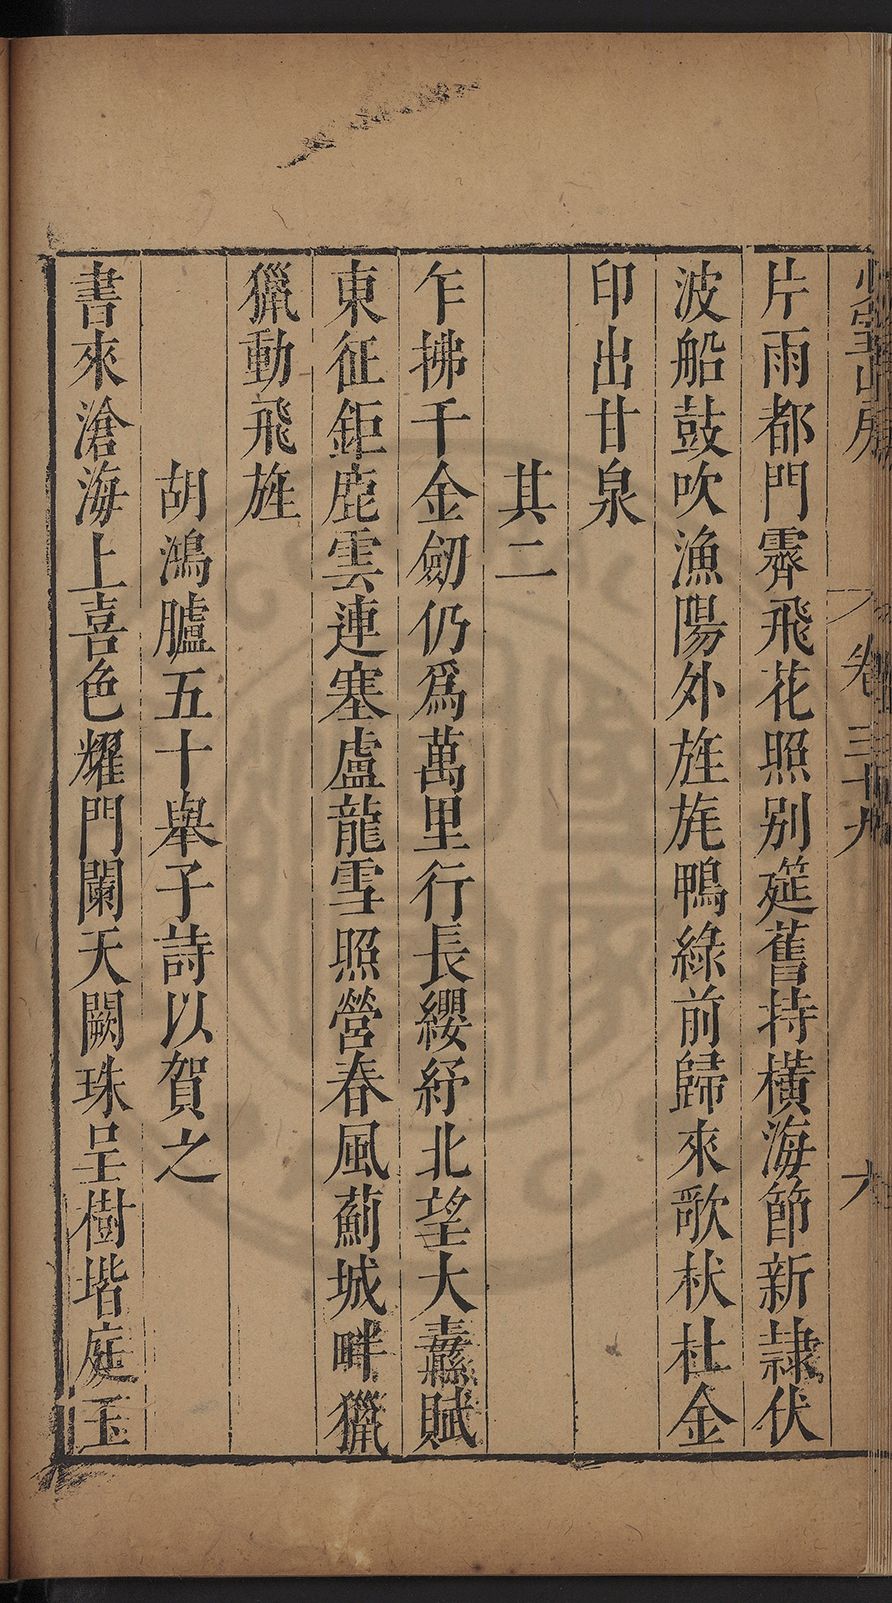 卷三十九
片雨都門霽飛花照别筵舊持橫海節新隷伏
波船鼓吹漁陽外旌旄鴨綠前歸來歌杕杜金
印出甘泉
其二
乍拂千金劒仍爲萬里行長纓紓北望大纛賦
東征鉅鹿雲連塞盧龍雪照營春風薊城畔獵
獵動飛旌
胡鴻臚五十舉子詩以賀之
書來滄海上喜色耀門闌天闕珠呈樹堦庭玉